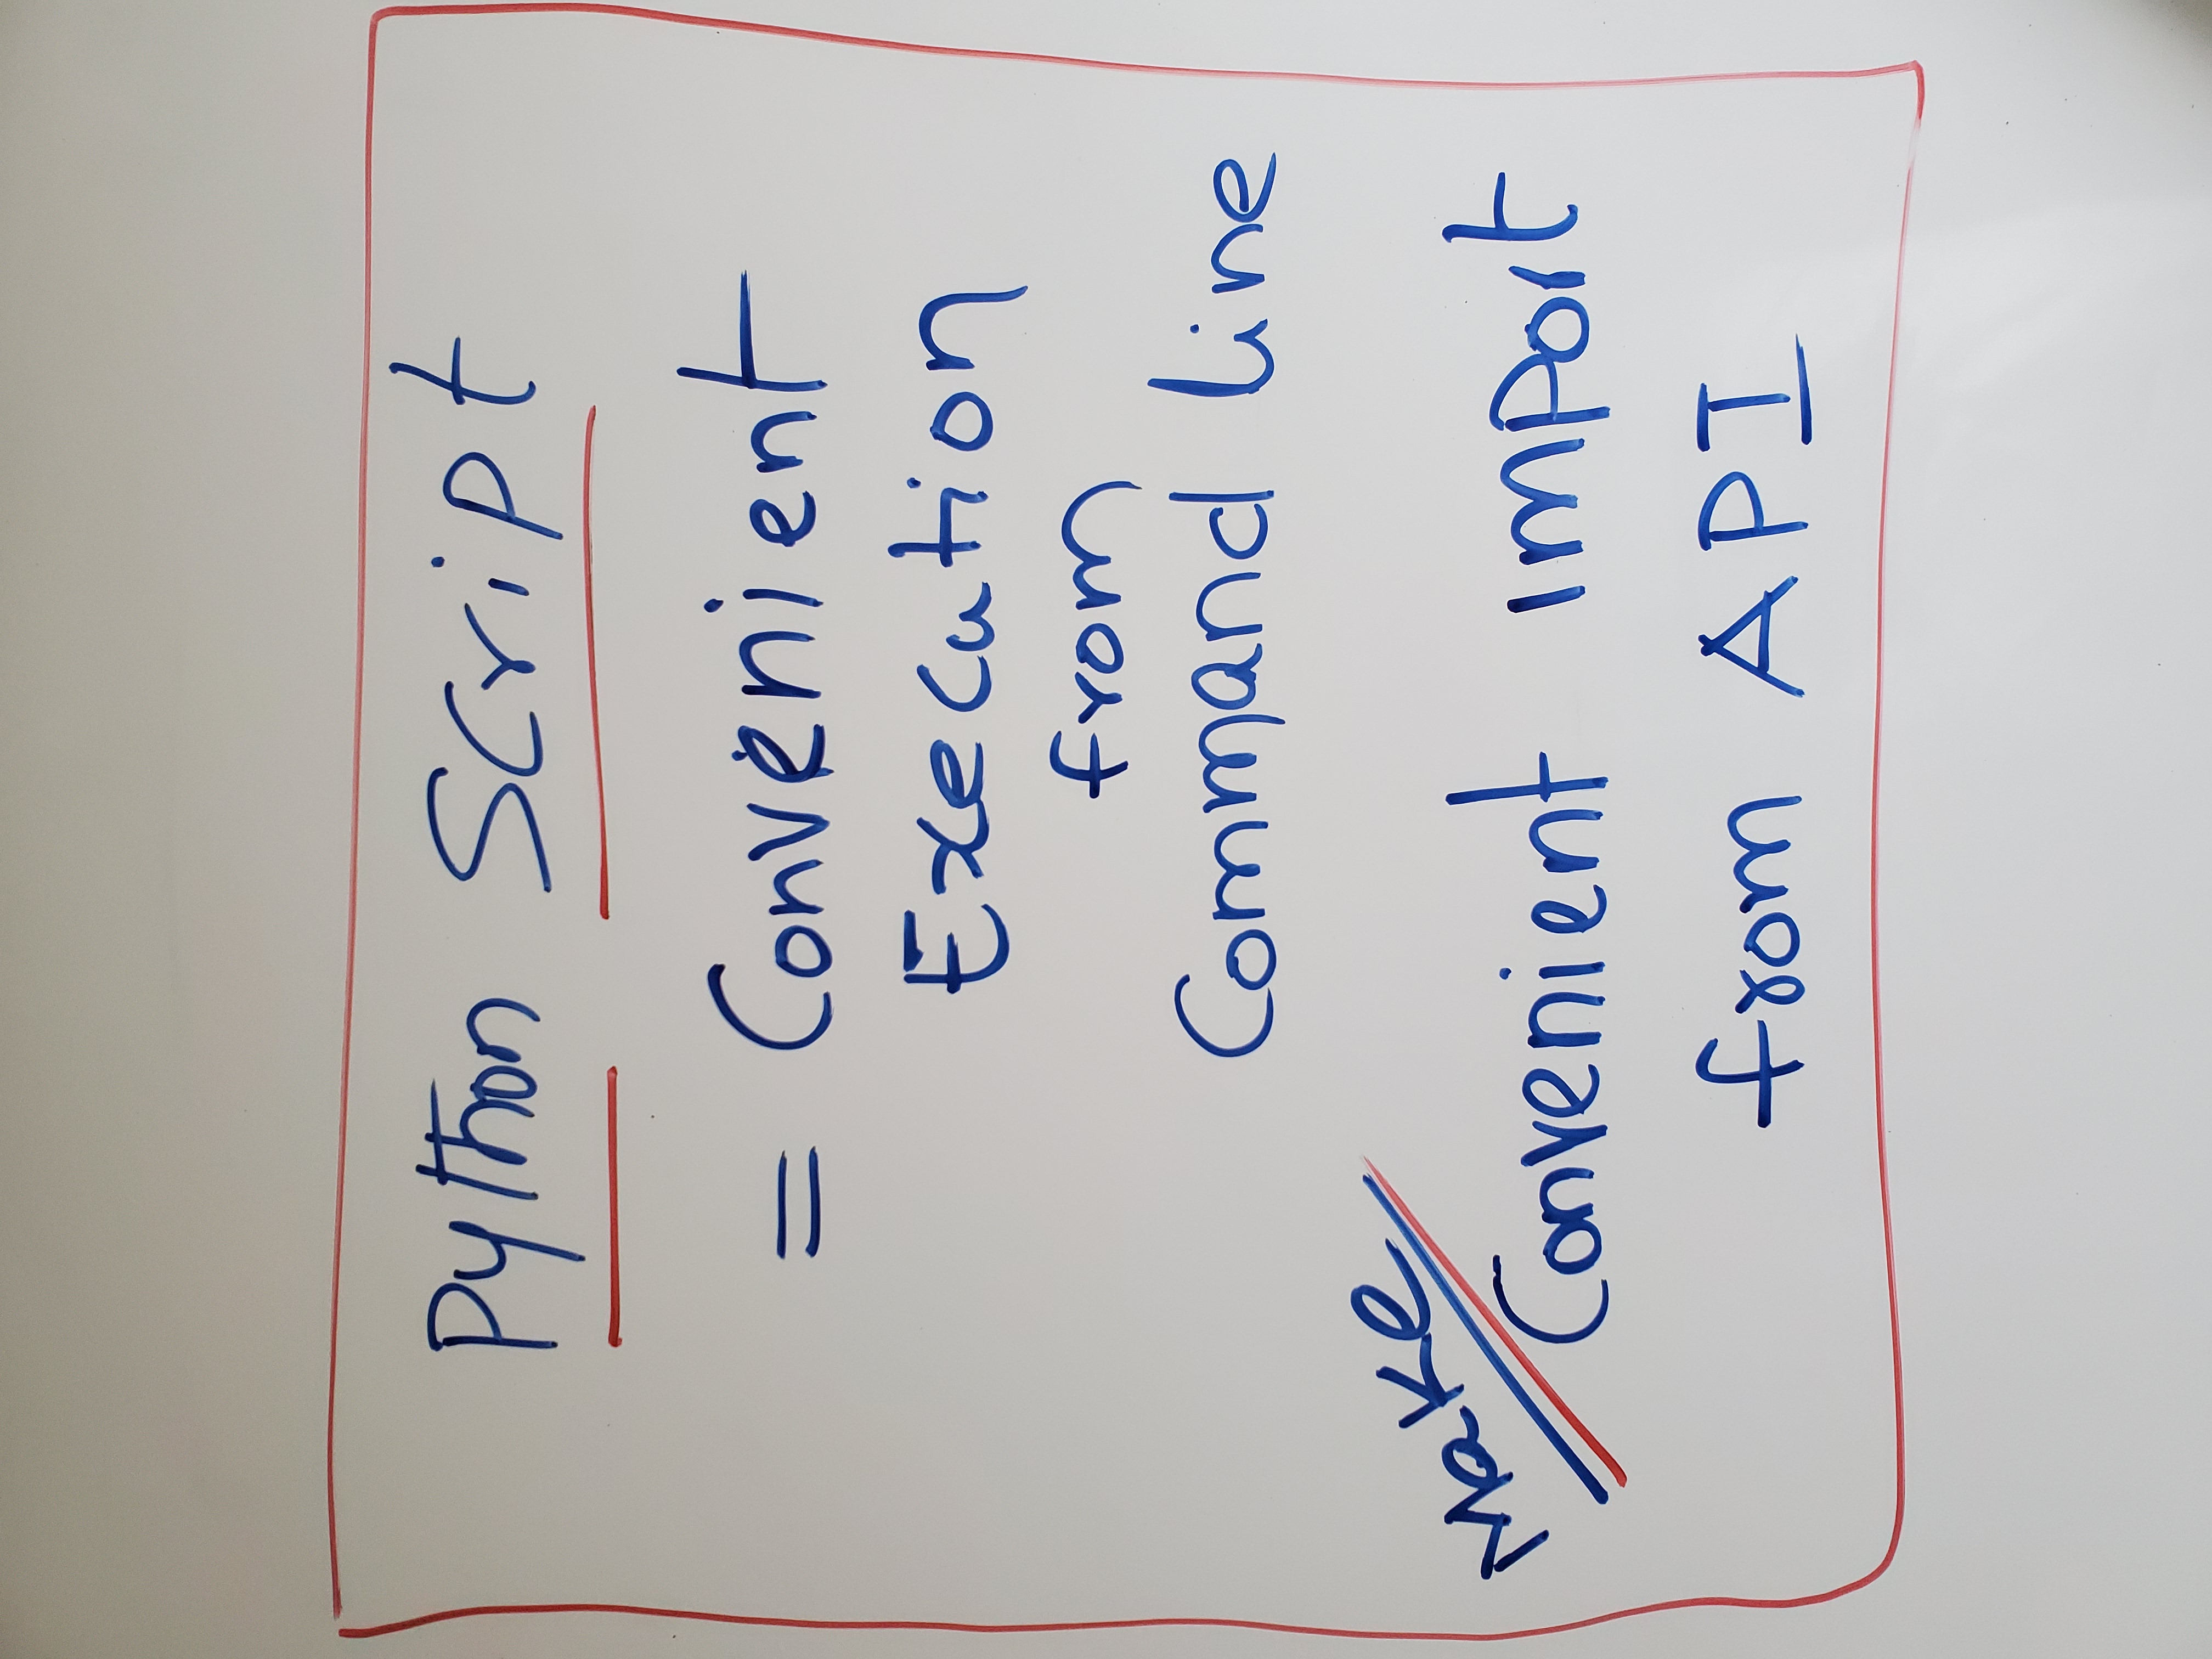 Python Script
= Convenient
Execution
from
Command line
Make
Convenient Import
from API